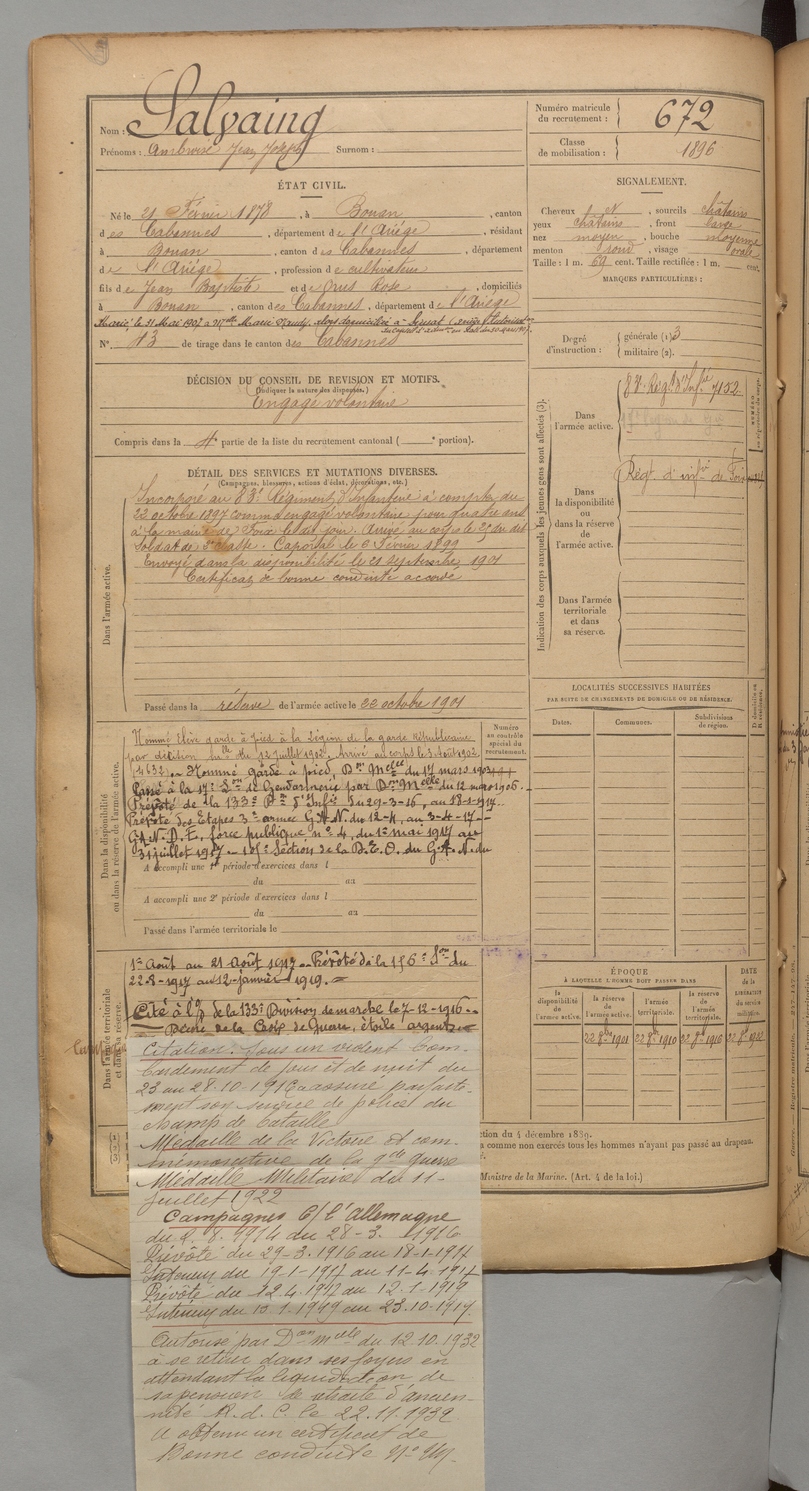 Nom : Salvaing
Prénoms : Ambroise Jean Joseph Surnom :
Numéro matricule
du recrutement : 672
Classe
de mobilisation : 1896
ÉTAT CIVIL.
Né le 21 Février 1878, à Bouan, canton
des Cabannes, département de l'Ariège, résidant
à Bouan, canton des Cabannes, département
de l'Ariège, profession de cultivateur
fils de Jean Baptiste et de Rose, domiciliés
à Bouan, canton des Cabannes, département de l'Ariège
Marié le 31 Mai 1907 à Melle Marie
N° 13 de tirage dans le canton des Cabannes
SIGNALEMENT.
Cheveux, sourcils châtains
yeux châtains, front large
nez moyen, bouche moyenne
menton rond, visage ovale
Taille : 1 m. 69 cent. Taille rectifiée : 1 m. cent.
MARQUES PARTICULIÈRES :
Degré
d'instruction :
générale (1) 3
militaire (2).
DÉCISION DU CONSEIL DE REVISION ET MOTIFS.
(Indiquer la nature des dispenses.)
Engagé volontaire
Compris dans la 4e partie de la liste du recrutement cantonal ( e portion).
DÉTAIL DES SERVICES ET MUTATIONS DIVERSES.
(Campagnes, blessures, actions d'éclat, décorations, etc.)
Dans l'armée active.
Incorporé au 83e Régiment d'Infanterie à compter du
22 octobre 1897 comme engagé volontaire pour quatre ans
à la mairie de Foix le dit jour. Arrivé au corps le 23 du dit
Soldat de 2e classe. Caporal le 6 Février 1899
Envoyé dans la disponibilité le 21 septembre 1901
Certificat de bonne conduite accordé
Passé dans la réserve de l'armée active le 22 octobre 1901
Indication des corps auxquels les jeunes gens sont affectés (3).
Dans
l'armée active.
83e Régt d'Infie 7152
Dans
la disponibilité
ou
dans la réserve
de
l'armée active.
Régt d'infie de Foix
Dans l'armée
territoriale
et dans
sa réserve.
LOCALITÉS SUCCESSIVES HABITÉES
PAR SUITE DE CHANGEMENTS DE DOMICILE OU DE RÉSIDENCE.
Dates.
Communes.
Subdivisions
de région.
D domicile ou
R résidence.
Dans la disponibilité
ou dans la réserve de l'armée active.
Numéro
au contrôle
spécial du
recrutement.
Nommé Elève garde à pied à la Légion de la garde républicaine
par décision mlle du 12 juillet 1902. Arrivé au corps le 3 Août 1902
(4632) Nommé garde à pied, Don Melle du 17 mars 1903
Passé à la 17e Lon de Gendarmerie par Don Melle du 12 mars 1906
Prévôté de la 133e Don d'Infie du 29-3-16, au 18-1-1917
Prévôté des Etapes 3e armée G.A.N. du 12-4, au 3-4-17
G.A.N. D.E. force publique n° 4, du 1er mai 1917 au
31 juillet 1917 Section de la D.E.O. du G.A.N. du
A accompli une 1re période d'exercices dans l
du au
A accompli une 2e période d'exercices dans l
du au
Passé dans l'armée territoriale le
Dans l'armée territoriale
et dans sa réserve.
1er Août au 21 Août 1917 Prévôté de la 156e Don du
22-8-1917 au 12-janvier 1919.
Cité à l'o/ de la 133e Division de marche le 7-12-1916
Décoré de la Croix de Guerre, étoile argent
ÉPOQUE
À LAQUELLE L'HOMME DOIT PASSER DANS
DATE
de la
LIBÉRATION
du service
militaire.
la
disponibilité
de
l'armée active.
la réserve
de
l'armée active.
l'armée
territoriale.
la réserve
de
l'armée
territoriale.
22 8bre 1901
22 8bre 1910
22 8bre 1916
22 8bre 1922
Citation. Sous un violent bom-
bardement de jour et de nuit du
23 au 28.10.1916 a assuré parfaite-
ment son service de police du
champ de bataille
Médaille de la Victoire et com-
mémorative de la gde guerre
Médaille Militaire du 11-
juillet 1922
ction du 4 décembre 1889.
comme non exercés tous les hommes n'ayant pas passé au drapeau.
Ministre de la Marine. (Art. 4 de la loi.)
Campagnes C/ l'Allemagne
du 2.8.1914 au 28-3.1916
Prévôté du 29-3.1916 au 18-1-1917
Intérieur du 19-1-1917 au 11-4-1917
Prévôté du 12.4.1917 au 12.1.1919
Intérieur du 13.1.1919 au 23.10.1919
Autorisé par Don mlle du 12.10.1932
à se retirer dans ses foyers en
attendant la liquidation de
sa pension de retraite d'ancien-
neté R.d.C. le 22.11.1932
A obtenu un certificat de
Bonne conduite